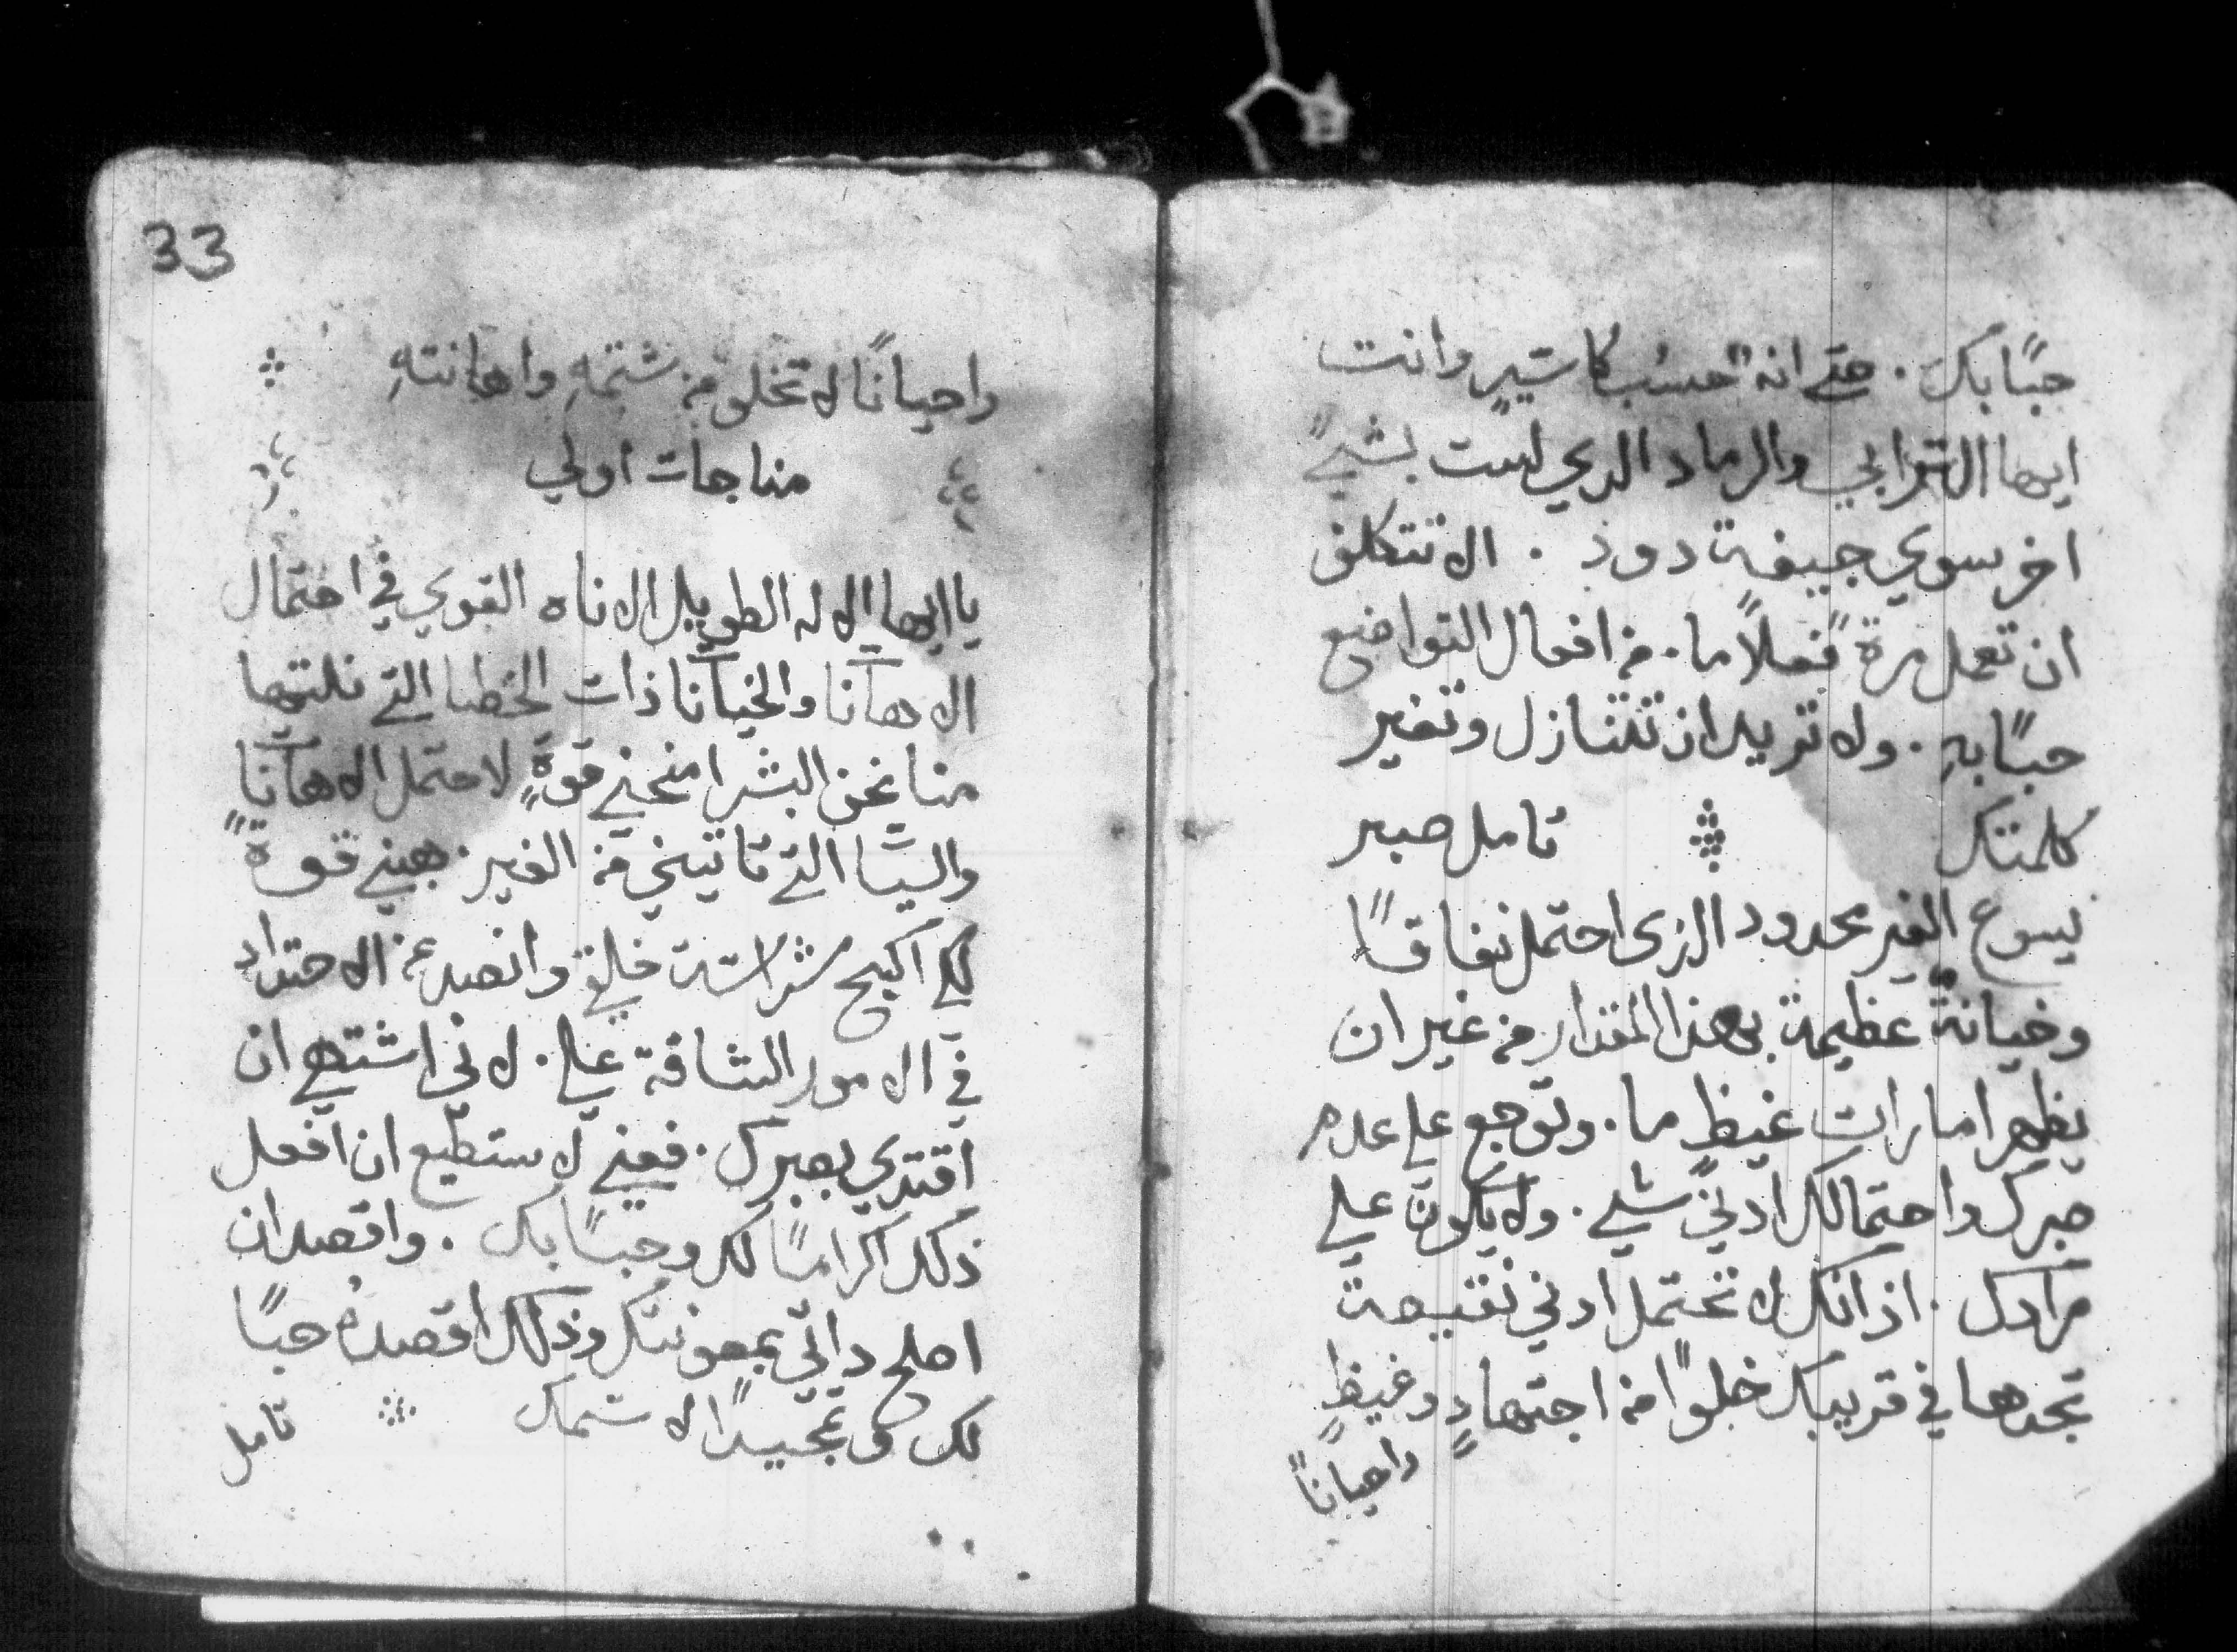 حبًا بك . حتي انهُ حسُب كاسيرٍ وانت
ايها الترابي والرماد الدي لست بشيءً
اخر سوي جيفة دود . الا تتكلف
ان تعمل مرةً فعلاً ما . من افعال التواضع
حبًا بهِ . ولا تريد ان تتنازل وتغير
كلمتك تامل صبر
يسوع الغير محدود الذى احتمل نفاقًا
وخيانةً عظيمة بهذا المقدار من غير ان
يظهر امارات غيظٍ ما . وتوجع علي عدم
صبرك واحتمالك ادني شي . ولا يكون علي
مرادك . اذ انك لا تحتمل ادني نقيصة
تجدها في قريبك خلوًا من اجتهادٍ وغيظٍ
واحيانًا
33
واحيانًا لا تخلو من شتمهِ واهانتهِ
مناجات اولي
يا ايها الاله الطويل الاناه القوي في احتمال
الاهانا والخيانا ذات الخطا التي نلتها
منا نحن البشر امنحني قوةٍ لاحتمل الاهاناٍ
والسيا التي تاتيني من الغير . هبني قوةً
لكي اكبح شراسة خلقي وانصد عن الاحتداد
في الامور الشاقة علي . لاني اشتهي ان
اقتدي بصبرك . فعني لاستطيع ان افعل
ذلك اكرامًا لك وحبًا بك . واقصد ان
اصلح داتي بمعونتك وذلك اقصدهُ حبًا
لك وتمجيدًا لاسمك تامل